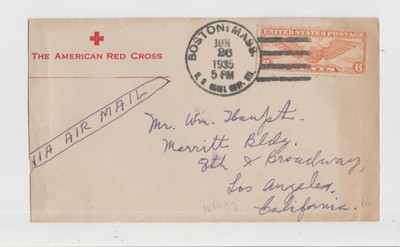 THE AMERICAN RED CROSS
BOSTON, MASS.
JUN
26
1935
5 PM
UNITED STATES POSTAGE
6 CENTS 6
VIA AIR MAIL
Mr. Wm. Haupt.
Merritt Bldg.
8th & Broadway,
Los Angeles,
California.